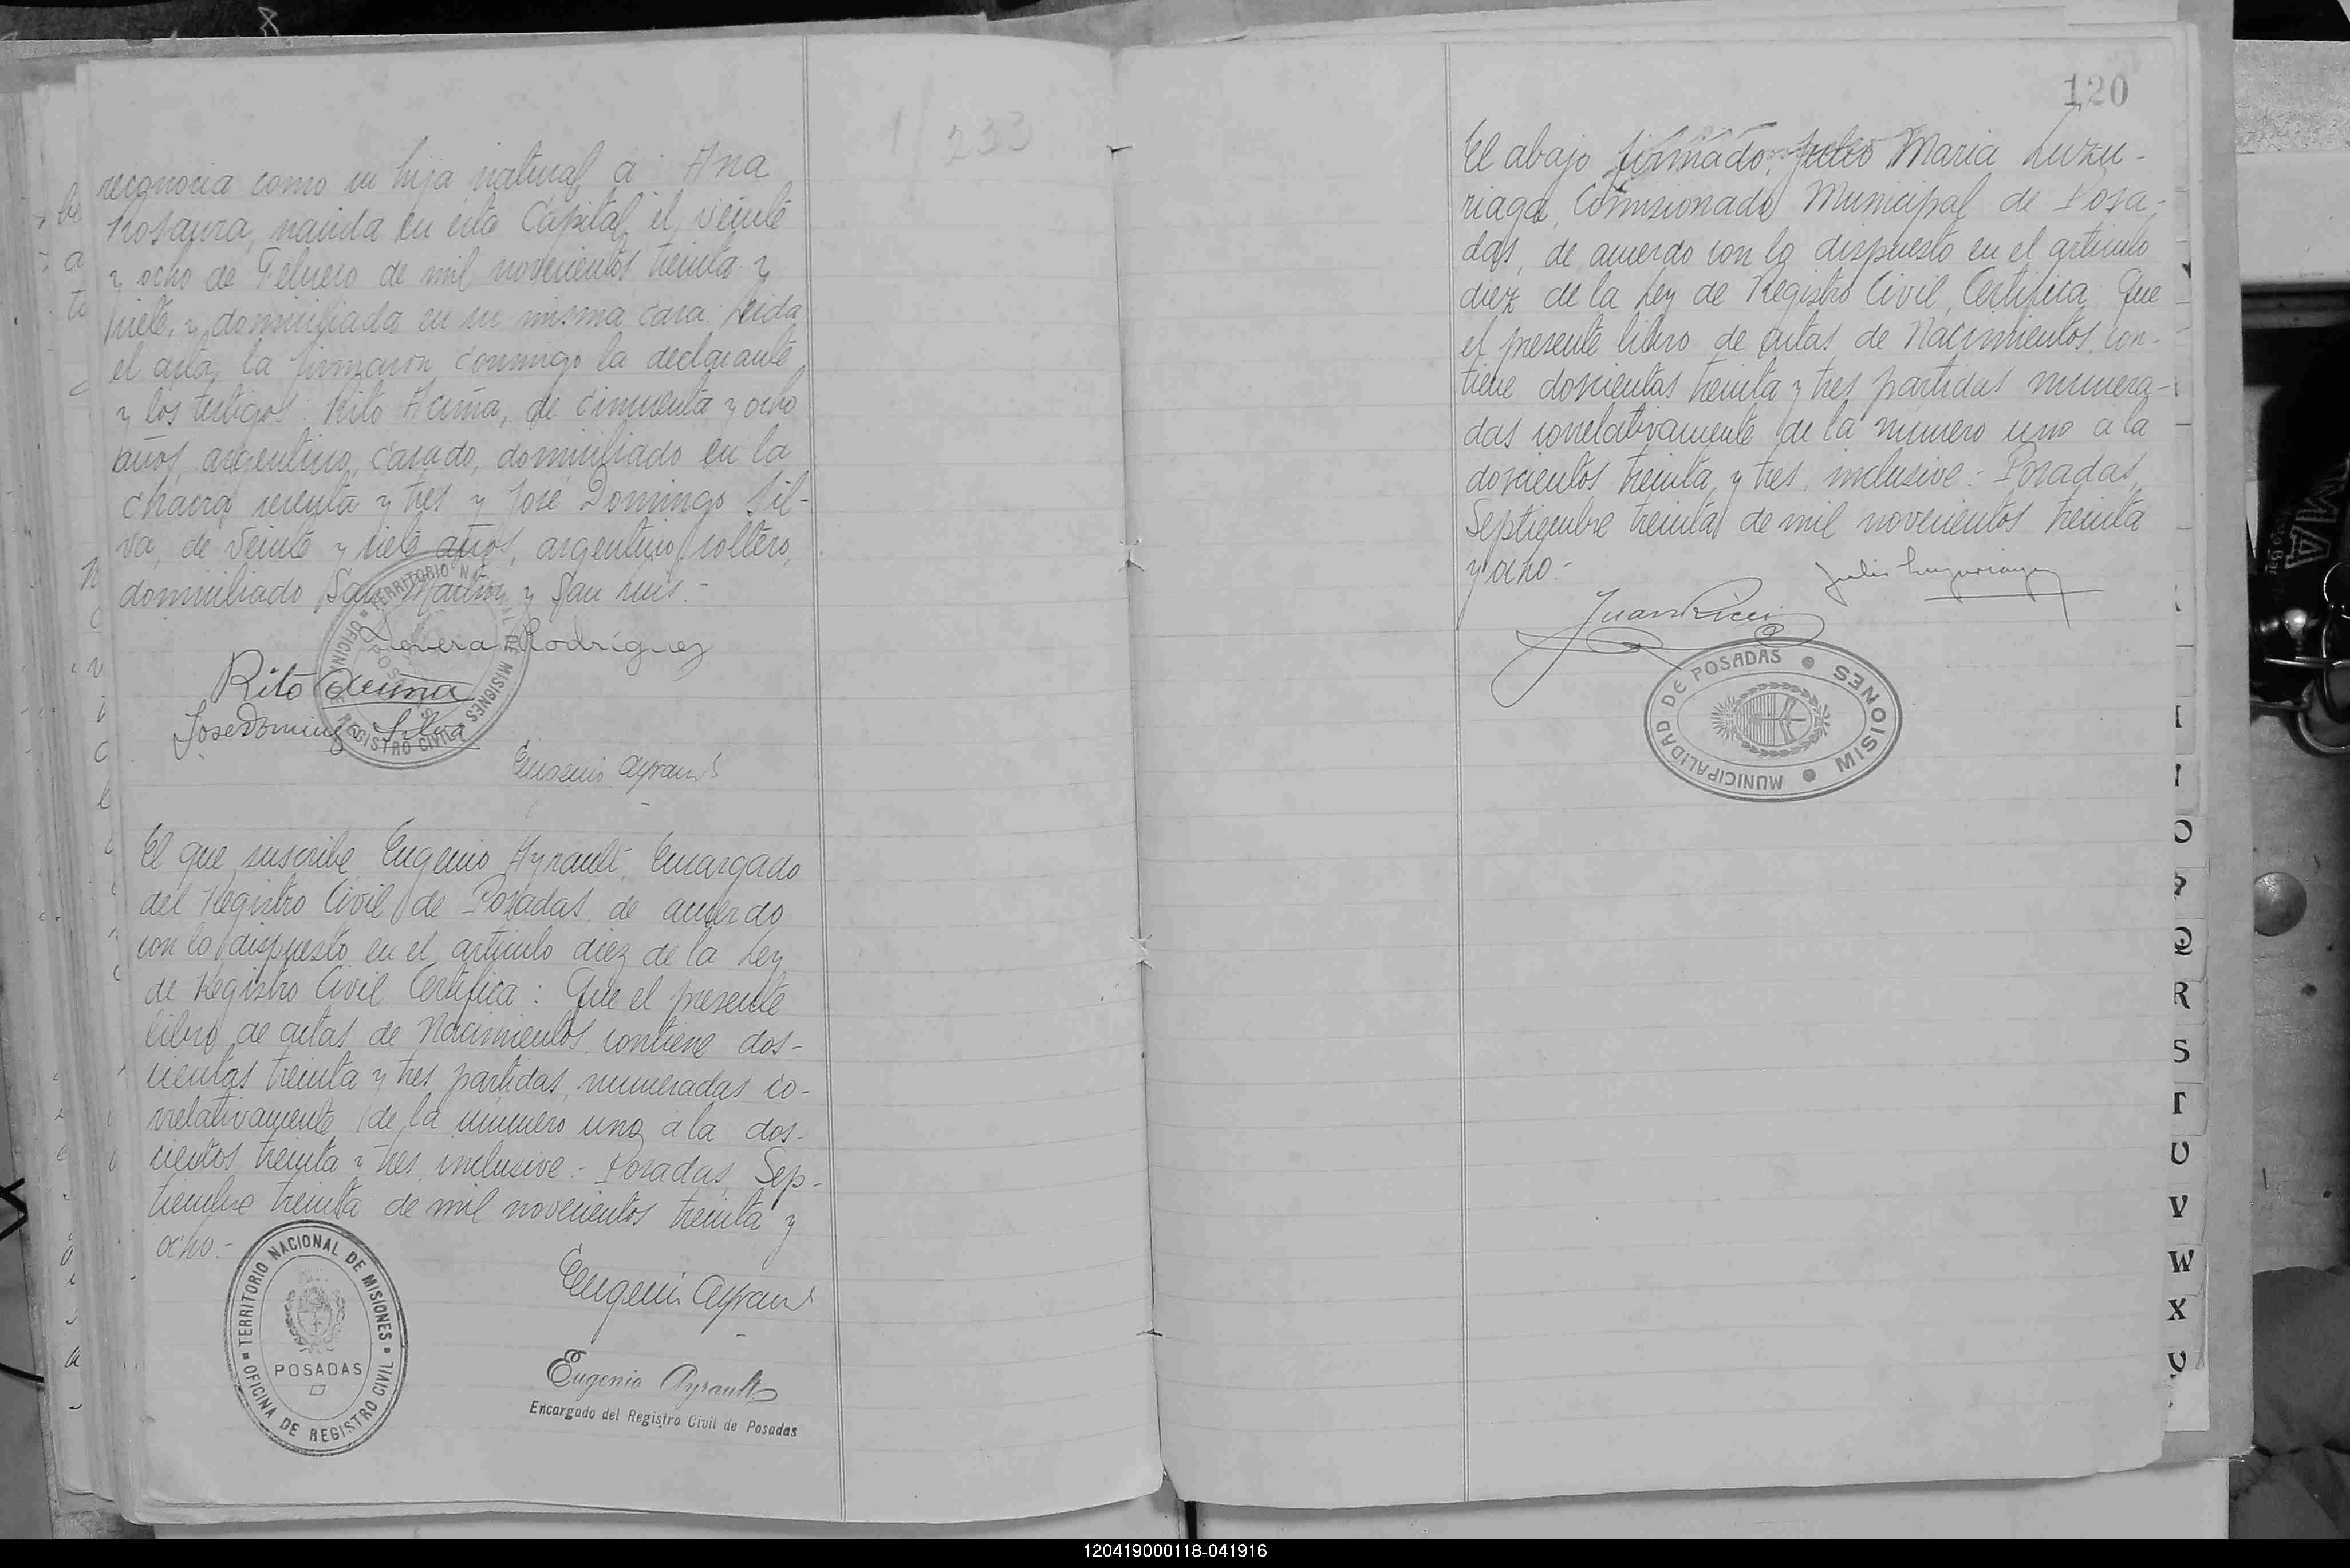 reconocia como su hija natural a: Ana
Rosaura, nacida en esta Capital el veinte
y ocho de Febrero de mil novecientos treinta y
siete, y domiciliada en su misma casa. Leida
el acta, la firmaron conmigo la declarante
y los testigos: Rito Acuña, de cincuenta y ocho
años, argentino, casado, domiciliado en la
chacra sesenta y tres y José Domingo Sil-
va, de veinte y siete años, argentino, soltero,
domiciliado San Martin y San Luis.-
Rodríguez
Rito Acuña
Jose Domingo Silva
TERRITORIO NACIONAL DE MISIONES
OFICINA DE REGISTRO CIVIL
POSADAS
Eugenio Ayrault
1/233
El que suscribe, Eugenio Ayrault, Encargado
del Registro Civil de Posadas, de acuerdo
con lo dispuesto en el articulo diez de la Ley
de Registro Civil, Certifica: Que el presente
libro de actas de Nacimientos, contiene dos-
cientas treinta y tres partidas, numeradas co-
rrelativamente de la número uno a la dos-
cientos treinta y tres, inclusive.- Posadas, Sep-
tiembre treinta de mil novecientos treinta y
ocho.-
TERRITORIO NACIONAL DE MISIONES
POSADAS
OFICINA DE REGISTRO CIVIL
Eugenio Ayrault
Eugenio Ayrault
Encargado del Registro Civil de Posadas
120
El abajo firmado, Julio Maria Luzu-
riaga, Comisionado Municipal de Posa-
das, de acuerdo con lo dispuesto en el articulo
diez de la Ley de Registro Civil, Certifica: Que
el presente libro de actas de Nacimientos, con-
tiene doscientas treinta y tres partidas numera-
das correlativamente de la número uno a la
doscientos treinta y tres, inclusive.- Posadas,
Septiembre treinta de mil novecientos treinta
y ocho.-
Julio Luzuriaga
Juan Ricci
MUNICIPALIDAD DE POSADAS
MISIONES
O
P
Q
R
S
T
U
V
W
X
120419000118-041916